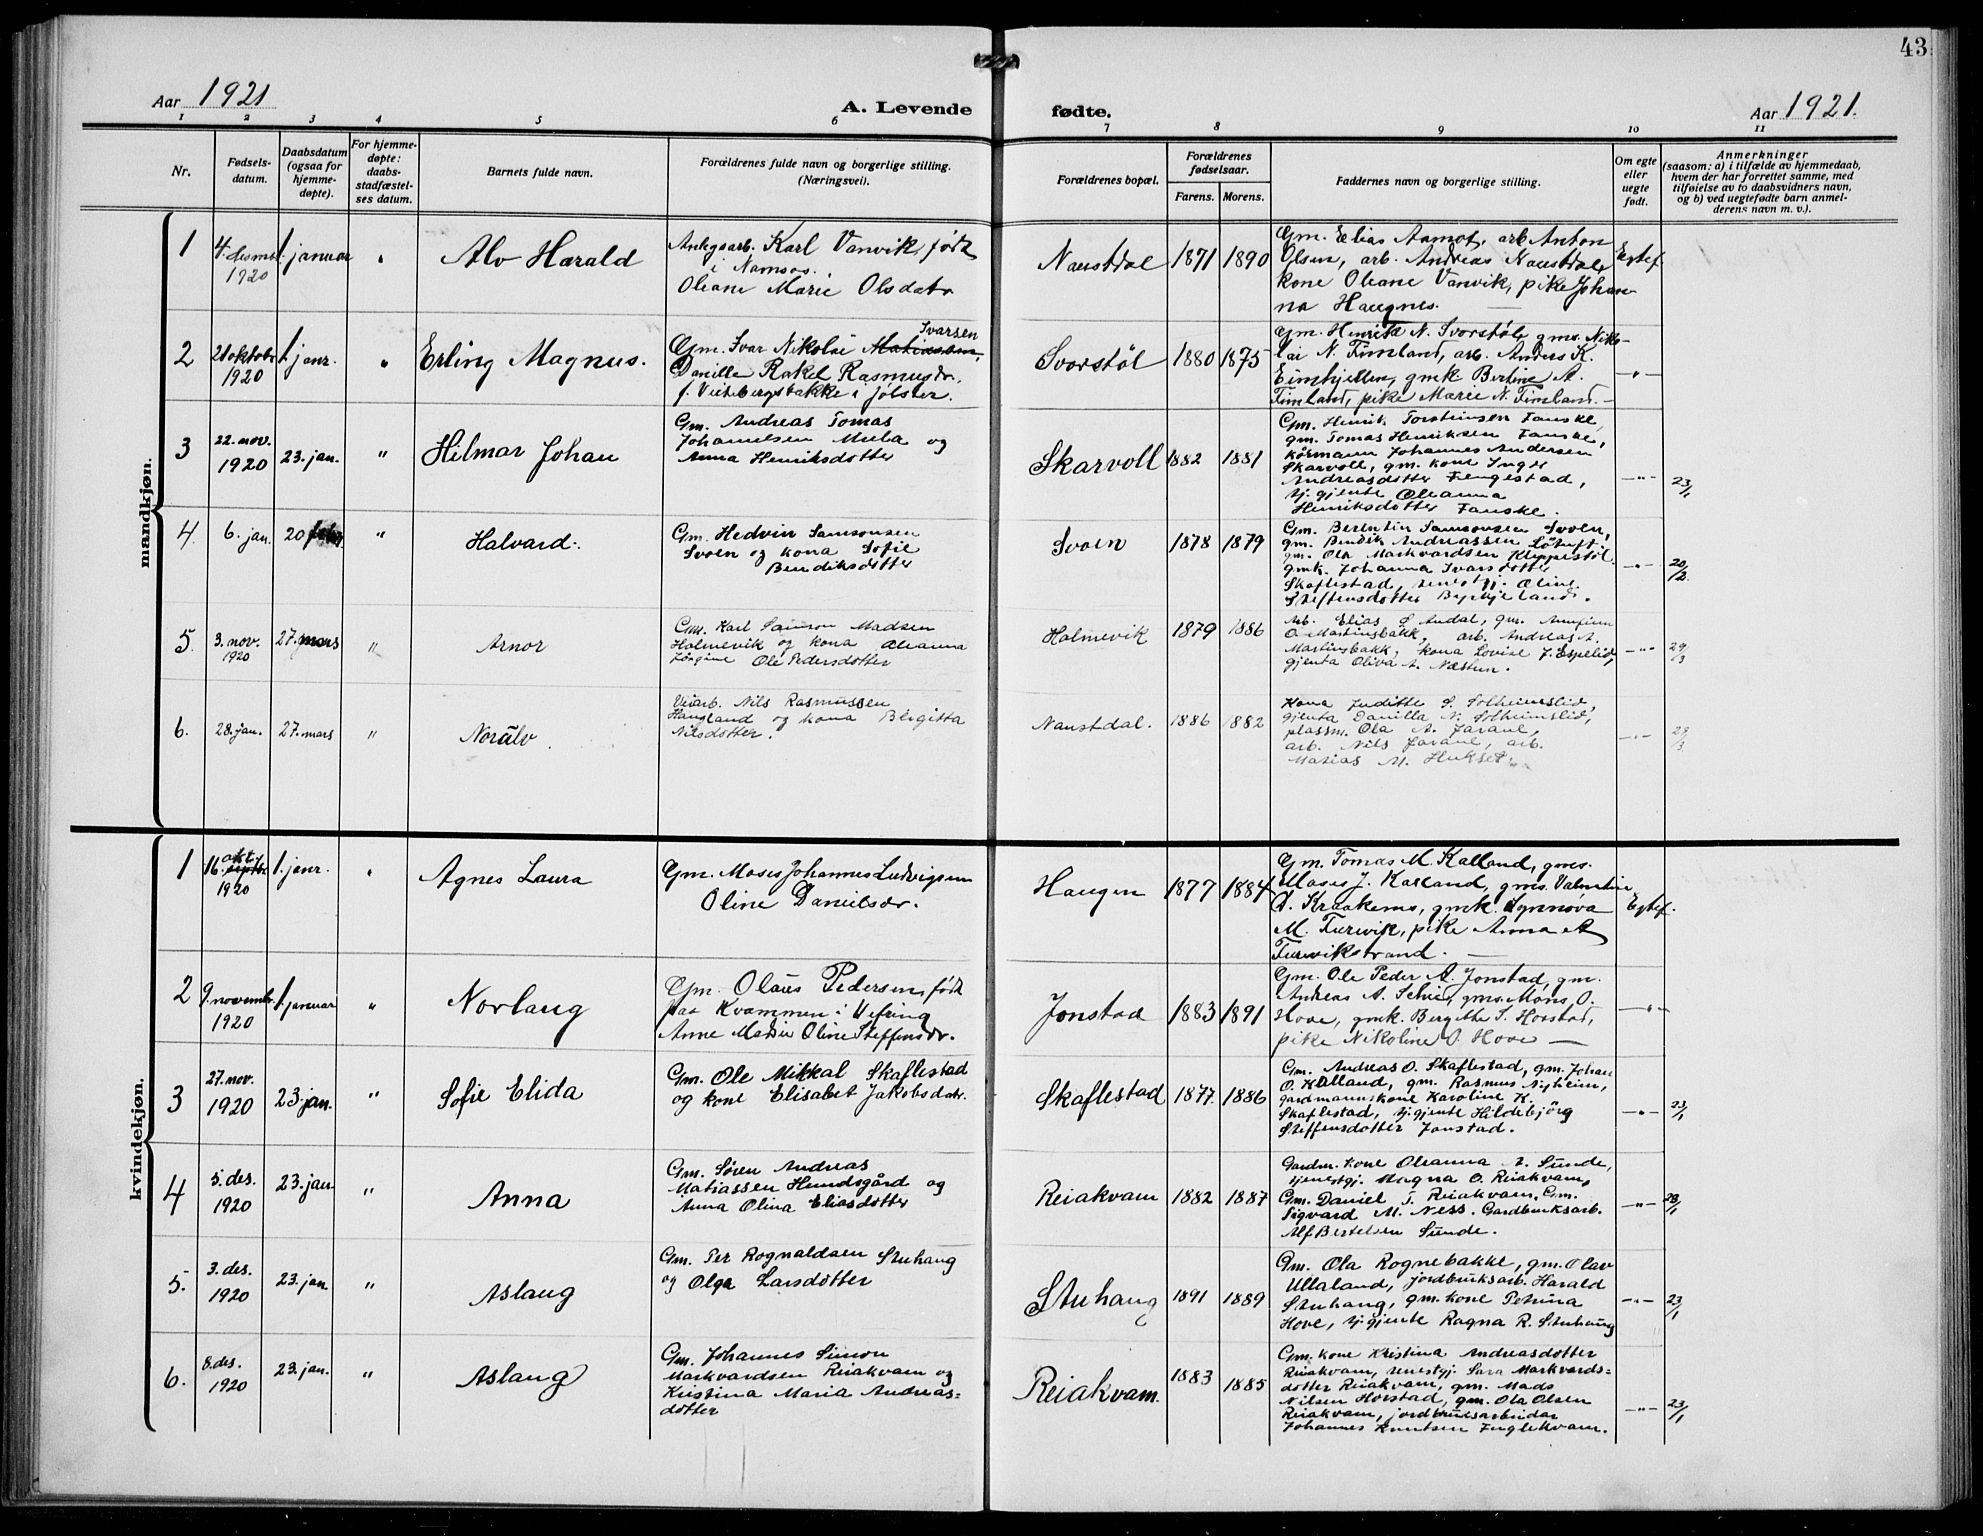 43
Aar 1921
A. Levende
fødte.
Aar 1921.
1 2 3 4 5 6 7 8 9 10 11
Nr.
Fødsels-
datum.
Daabsdatum
(ogsaa for
hjemme-
døpte).
For hjemme-
døpte:
daabs-
stadfæstel-
ses datum.
Barnets fulde navn.
Forældrenes fulde navn og borgerlige stilling.
(Næringsvei).
Forældrenes bopæl.
Forældrenes
fødselsaar.
Farens. Morens.
Faddernes navn og borgerlige stilling.
Om egte
eller
uegte
født.
Anmerkninger
(saasom: a) i tilfælde av hjemmedaab,
hvem der har forrettet samme, med
tilføielse av to daabsvidners navn,
og b) ved uegtefødte barn anmel-
derens navn m. v.).
mandkjøn.
1
4. desmbr.
1920
1. januar
"
Alv Harald
Anlgsarb. Karl Vanvik, født
i Namsos.
Oleane Marie Olsdatr
Naustdal
1871
1890
Gm. Elias Aamot, arb Anton
Olsen, arb. Andreas Naustdal,
kone Oleane Vanvik, pike Johan-
na Haugnes.
Egtef.
2
21 oktobr
1920
1. janr.
"
Erling Magnus.
Ivarsen
Gm. Ivar Nikolai Matiassen,
Danille Rakel Rasmusdr.
f. Veitebergsbakke i Jølster.
Svorstøl
1880
1875
Gm. Henrik N. Svorstøl, gms. Niko-
lai N. Timland, arb. Anders K.
Eimhjellen, gmk. Bertine A.
Timland, pike Marie N. Timland.
-"-
3
22. nov.
1920
23. jan.
"
Hilmar Johan
Gm. Andreas Tomas
Johannesen Mula og
Anna Henriksdotter
Skarvoll
1882
1881
Gm. Henrik Torsteinsen Fanske,
gm. Tomas Henriksen Fanske,
kårmann Johannes Andersen
Skarvoll, gm. kone Inger
Andreasdotter Fengestad,
tj. gjente Oleanna
Henriksdotter Fanske.
-"-
23/1
4.
6. jan.
20 febr.
"
Halvard.
Gm. Hedvin Samsonsen
Svoen og kona Sofie
Bendiksdotter
Svoen
1878
1879
Gm. Berentin Samsonsen Svoen,
gm. Bendik Andreassen Løtuft,
gm. Ola Markvardsen Kleppestøl
gmk. Johanna Ivarsdotter
Skaflestad, tenestgj. Oline
Steffensdotter Byrkjeland.
-"-
20/2.
5.
3. nov.
1920
27. mars
"
Arnor
Gm. Karl Samson Madsen
Holmevik og kona Oleanna
Jørgine Ole Pedersdotter
Holmevik
1879
1886
Arb. Elias Ø Andal, gm. Arnfinn
O. Martinsbakk, arb. Andreas A.
Martinsbakk, kona Lovise J. Espelid,
gjenta Oliva A. Næstun.
-"-
29/3
6.
28. jan.
27. mars
"
Noralv
Veiarb. Nils Rasmussen
Haugland og kona Birgitta
Nilsdotter.
Naustdal.
1886
1882
Kona Juditte S. Solheimslid,
gjenta Danilla N. Solheimslid,
plassm. Ola A. Javane,
arb. Nils Javane, arb.
Matias M. Hukset.
-"-
kvindekjøn.
1
okt.
16. septbr
1920
1. janr.
"
Agnes Laura
Gm. Moses Johannes Ludvigsen
Oline Danielsdr.
Haugen
1877
1884
Gm. Tomas M. Kalland, gms.
Moses J. Kalland, gms. Valentine
D. Kraakenes, gmk. Synnøva
M. Furevik, pike Anna A
Furevikstrand.
Egtef.
2
9. novembr
1920
1. januar
"
Norlaug
Gm. Olaus Pedersen, født
paa Kvammen i Vefring
Anne Marie Oline Steffensdr.
Jonstad
1883
1891
Gm. Ole Peder A. Jonstad, gm.
Andreas A. Sehie, gms. Mons O.
Hove, gmk. Bergitte S. Horstad,
pike Nikoline O. Hove
-"-
3
27. nov.
1920
23. jan.
"
Sofie Elida
Gm. Ole Mikkal Skaflestad
og kone Elisabet Jakobsdatr.
Skaflestad
1877.
1886
Gm. Andreas O. Skaflestad, gm. Johan
O. Kalland, gm. Rasmus Nigheim,
gardmannskone Karoline K.
Skaflestad, tj. gjente Hildebjörg
Steffensdotter Jonstad.
-"-
23/1
4
5. des.
1920
23. jan.
"
Anna
Gm. Søren Andreas
Matiassen Hundsgård og
Anna Olina Eliasdotter
Reiakvam
1882
1887
Gardm. Kone Oleanna A. Sunde,
tjenestgj. Magna O. Reiakvam,
Gm. Daniel T. Reiakvam, Gm.
Sigvard M. Ness. Gardbruksarb.
Alf Bertelsen Sunde.
-"-
23/1
5.
3. des.
1920
23. jan
"
Aslaug
Gm. Per Rognaldsen Stuhaug
og Olga Larsdotter
Stuhaug
1891
1889
Gm. Ola Rognebakke, gm. Olav
Ullaland, jordbruksarb. Harald
Stuhaug, gm. kone Petrina
Hove, tj. gjente Ragna R. Stuhaug
-"-
23/1
6.
8. des.
1920
23. jan.
"
Aslaug
Gm. Johannes Simon
Markvardsen Reiakvam og
Kristina Maria Andreas=
dotter
Reiakvam.
1883
1885
Gm. kone Kristina Andreasdotter
Reiakvam, tenestgj. Sara Markvards=
dotter Reiakvam, gm. Mads
Nilsen Horstad, gm. Ola Olsen
Reiakvam, jordbruksarbeidar
Johannes Knutsen Fuglekvam.
-"-
23/1